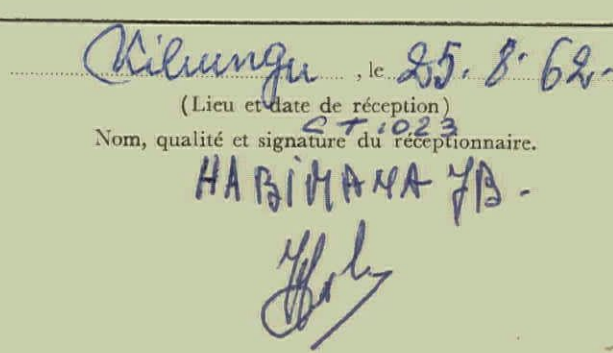 Kibungu, le 25.8.62-
(Lieu et date de réception)
CT:023
Nom, qualité et signature du réceptionnaire.
HABIMANA JB-